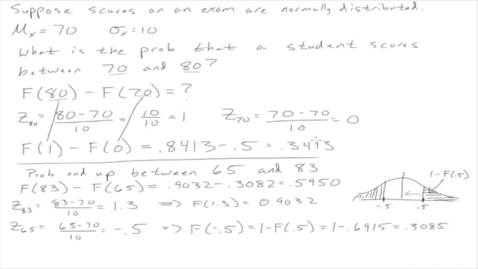 Suppose scores on an exam are normally distributed.
Mx = 70 σx = 10
What is the prob that a student scores
between 70 and 80?
F(80) - F(70) = ?
Z80 = 80-70/10 = 10/10 = 1 Z70 = 70-70/10 = 0
F(1) - F(0) = .8413 - .5 = .3413
Prob end up between 65 and 83
F(83) - F(65) = .9032 - .3082 = .5950
Z83 = 83-70/10 = 1.3 ⇒ F(1.3) = 0.9032
Z65 = 65-70/10 = -.5 ⇒ F(-.5) = 1-F(.5) = 1-.6915 = .3085
1-F(.5)
-.5 .5